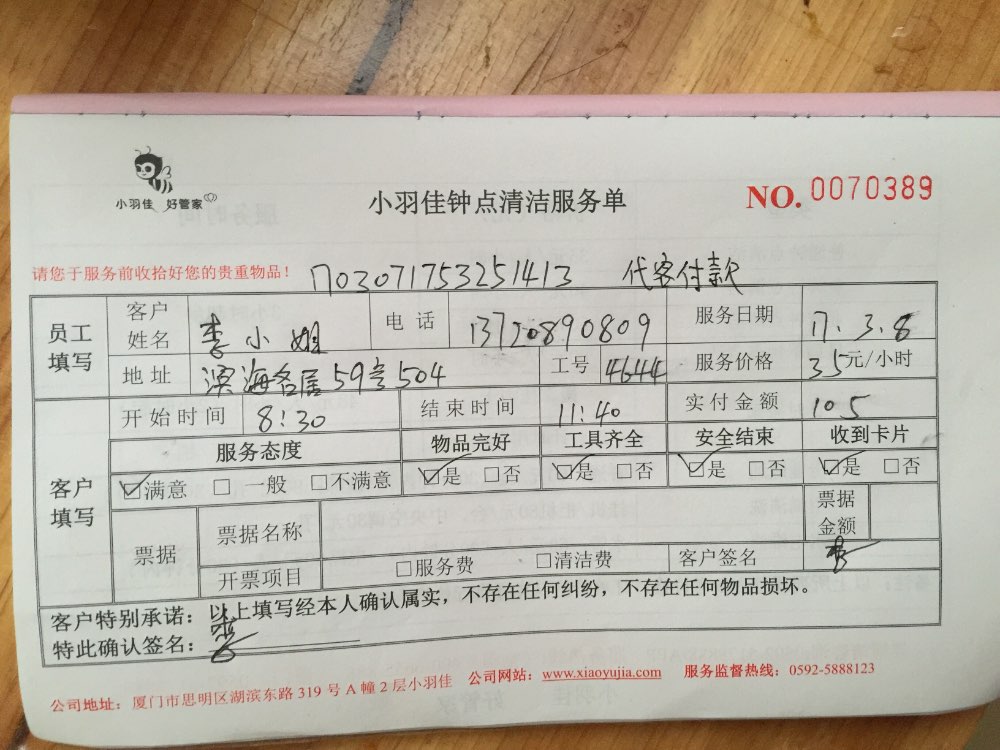 小羽佳 好管家
小羽佳钟点清洁服务单
NO. 0070389
请您于服务前收拾好您的贵重物品！
170307175325​1413 代客付款
员工填写 客户姓名 李小姐 电话 13720890809 服务日期 17.3.8
地址 滨海名居59号504 工号 4644 服务价格 35元/小时
客户填写 开始时间 8:30 结束时间 11:40 实付金额 105
服务态度 物品完好 工具齐全 安全结束 收到卡片
☑满意 □一般 □不满意 ☑是 □否 ☑是 □否 ☑是 □否 ☑是 □否
票据 票据名称 票据金额
开票项目 □服务费 □清洁费 客户签名 李
客户特别承诺：以上填写经本人确认属实，不存在任何纠纷，不存在任何物品损坏。
特此确认签名：李
公司地址：厦门市思明区湖滨东路 319 号 A 幢 2 层小羽佳 公司网站：www.xiaoyujia.com 服务监督热线：0592-5888123